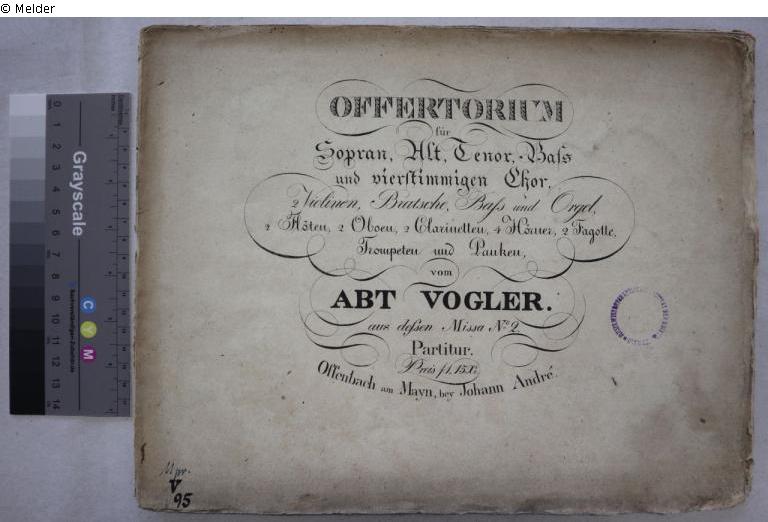 © Melder
OFFERTORIUM
für
Sopran, Alt, Tenor, Baſs
und vierstimmigen Chor,
2 Violinen, Bratsche, Baſs und Orgel,
2 Flöten, 2 Oboen, 2 Clarinetten, 4 Hörner, 2 Fagotte,
Trompeten und Pauken,
vom
ABT VOGLER.
aus deſsen Missa No. 2.
Partitur.
Preis f 1. 15 X.
Offenbach am Mayn, bey Johann André.
V
95
Grayscale
0
1
2
3
4
5
6
7
8
9
10
11
12
13
14
C
Y
M